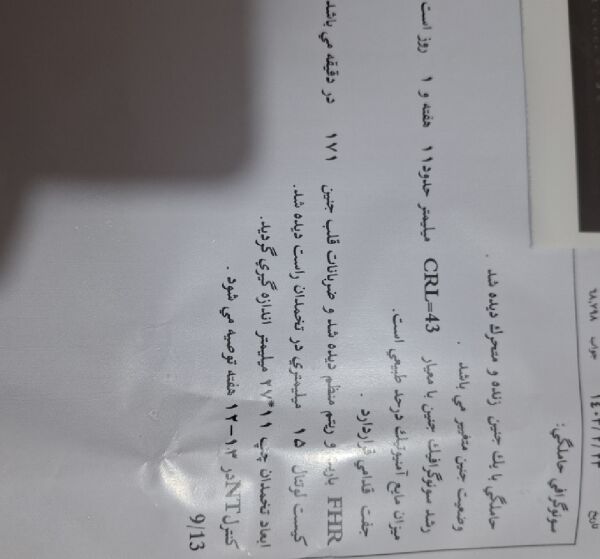 تاریخ
جواب
سونوگرافی حاملگی:
حاملگی با یک جنین زنده و متحرک دیده شد .
وضعیت جنین متغییر می باشد .
رشد سونوگرافیک جنین با معیار CRL=43 میلیمتر حدود ۱۱ هفته و ۱ روز است
میزان مایع آمنیوتیک درحد طبیعی است.
جفت قدامی قراردارد .
FHR بارب و ریتم منظم دیده شد و ضربانات قلب جنین ۱۷۱ در دقیقه می باشد
کیست لوتئال ۱۵ میلیمتری در تخمدان راست دیده شد.
ابعاد تخمدان چپ ۱۱*۲۷ میلیمتر اندازه گیری گردید.
کنترل NT در ۱۳-۱۲ هفته توصیه می شود .
9/13